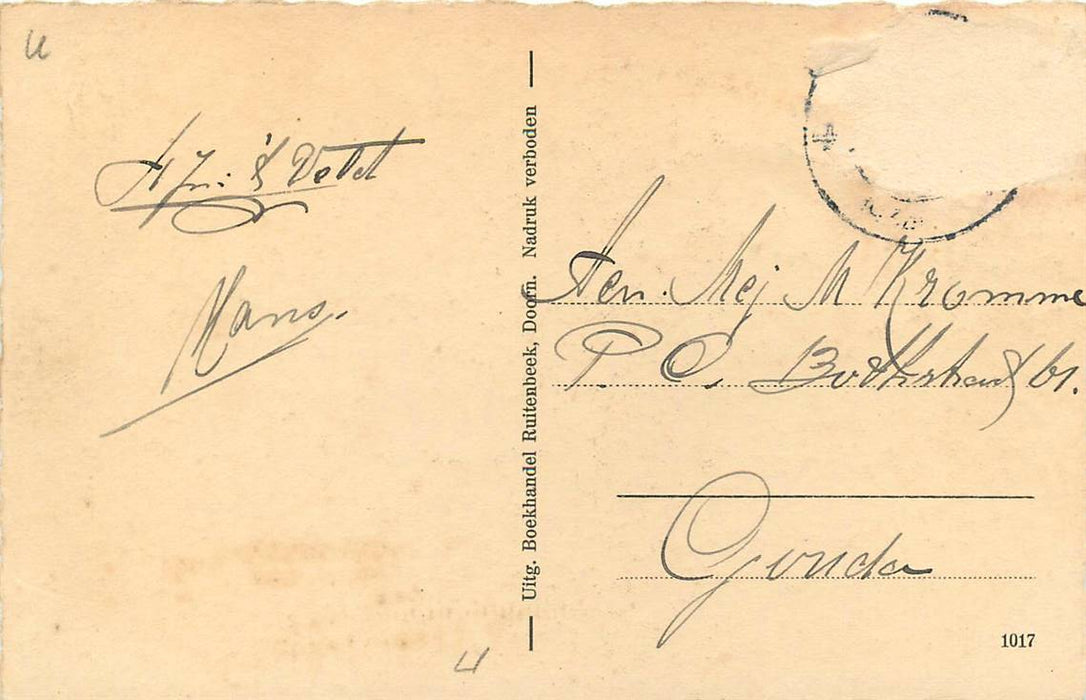 Hans.
Uitg. Boekhandel Ruitenbeek, Doorn. Nadruk verboden
Aen. Mej M Kromme
P. C. Bothstraat 61.
Gouda
1017